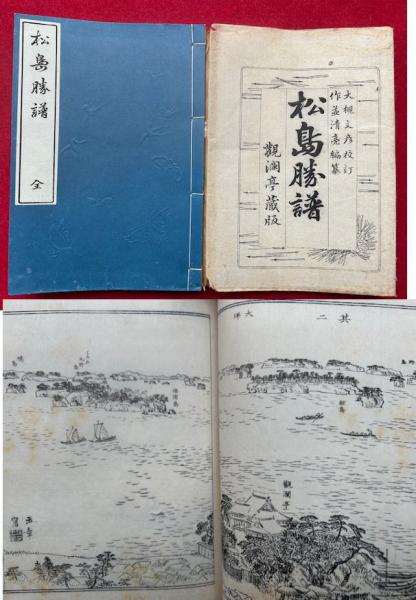 松島勝譜
全
大槻文彦校訂
作並清亮編纂
松島勝譜
觀瀾亭蔵版
其二
大洋
觀瀾亭